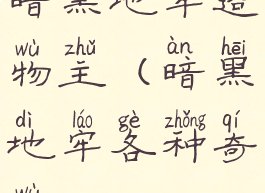 暗黑地牢造
wù zhǔ àn hēi
物主（暗黑
dì láo gè zhǒng qí
地牢各种奇
wù